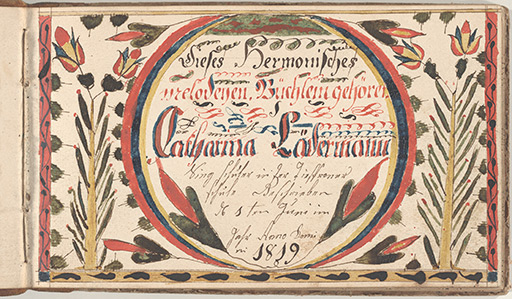 Dieses Hermonisches
melodeyen Büchlein gehöret
Catharina Lädermann
Sing Schüler in der
Schule Geschrieben
d 1ten Jener im
Jahr Anno Domi
ni 1819